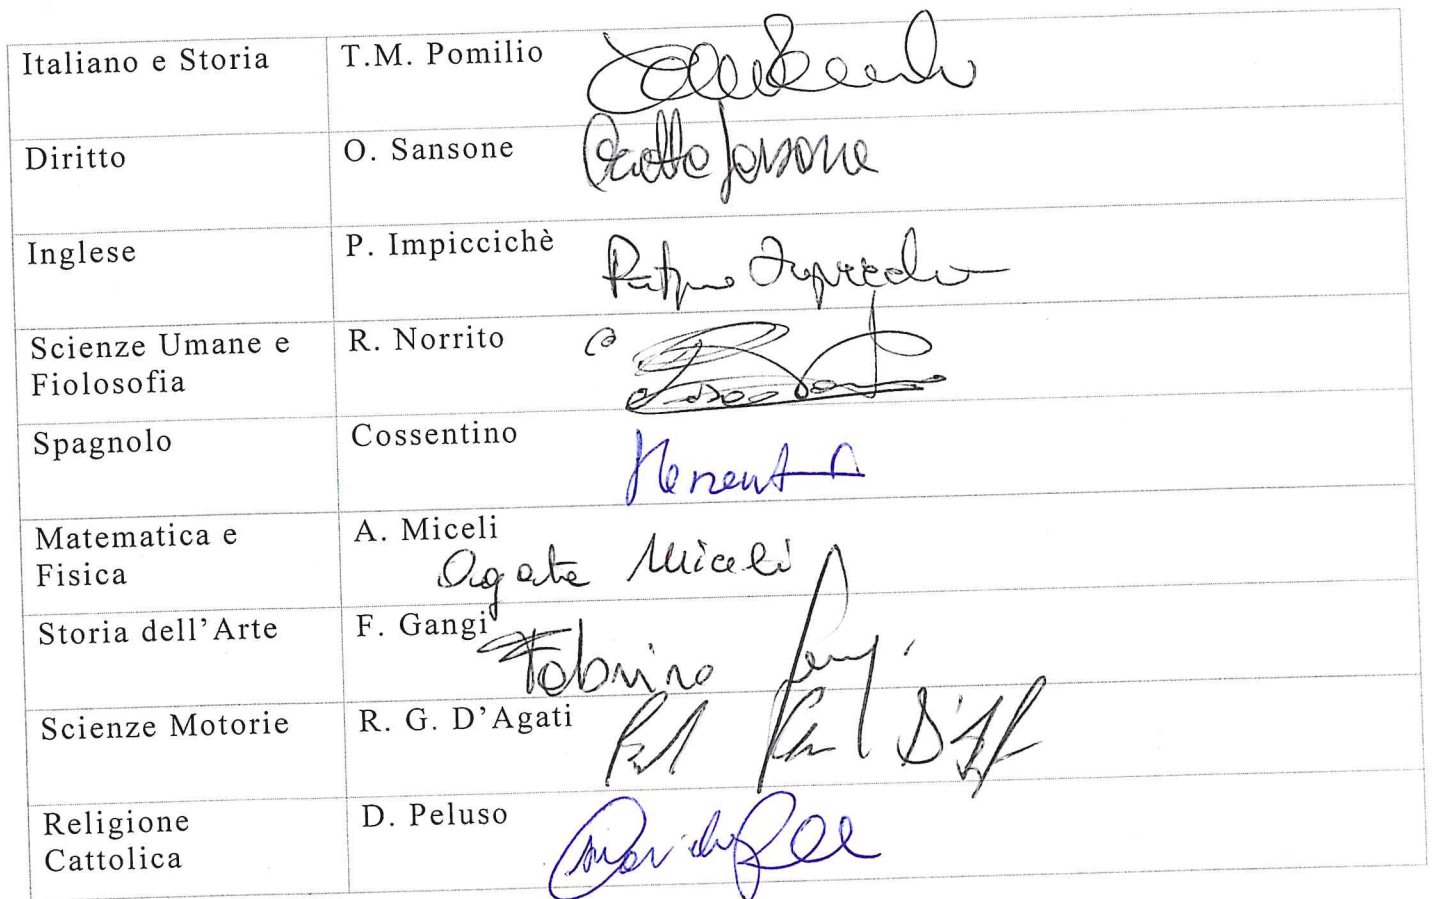 Italiano e Storia T.M. Pomilio
Diritto O. Sansone
Inglese P. Impiccichè
Scienze Umane e R. Norrito
Fiolosofia
Spagnolo Cossentino
Matematica e A. Miceli
Fisica Agata Miceli
Storia dell'Arte F. Gangi
Fabrizio Gangi
Scienze Motorie R. G. D'Agati
Religione D. Peluso
Cattolica